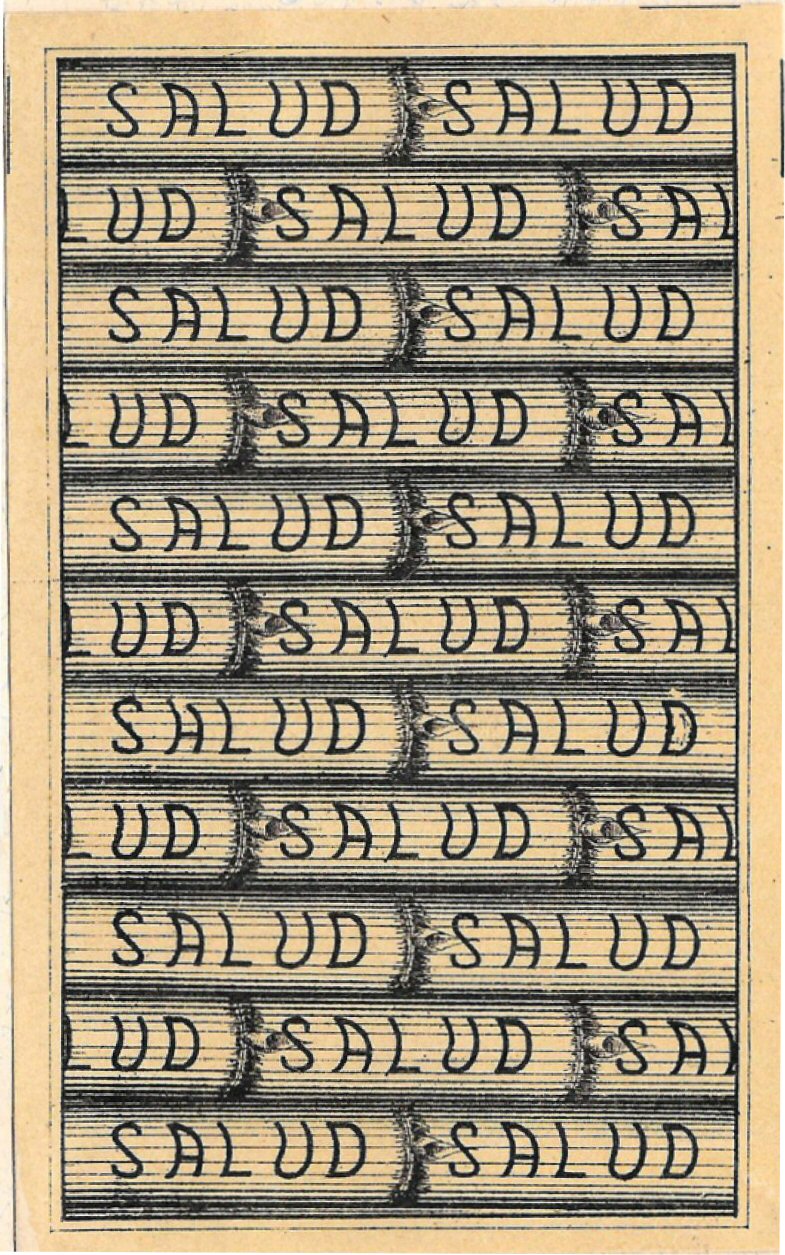 SALUD SALUD
LUD SALUD SAL
SALUD SALUD
LUD SALUD SAL
SALUD SALUD
LUD SALUD SAL
SALUD SALUD
LUD SALUD SAL
SALUD SALUD
LUD SALUD SAL
SALUD SALUD